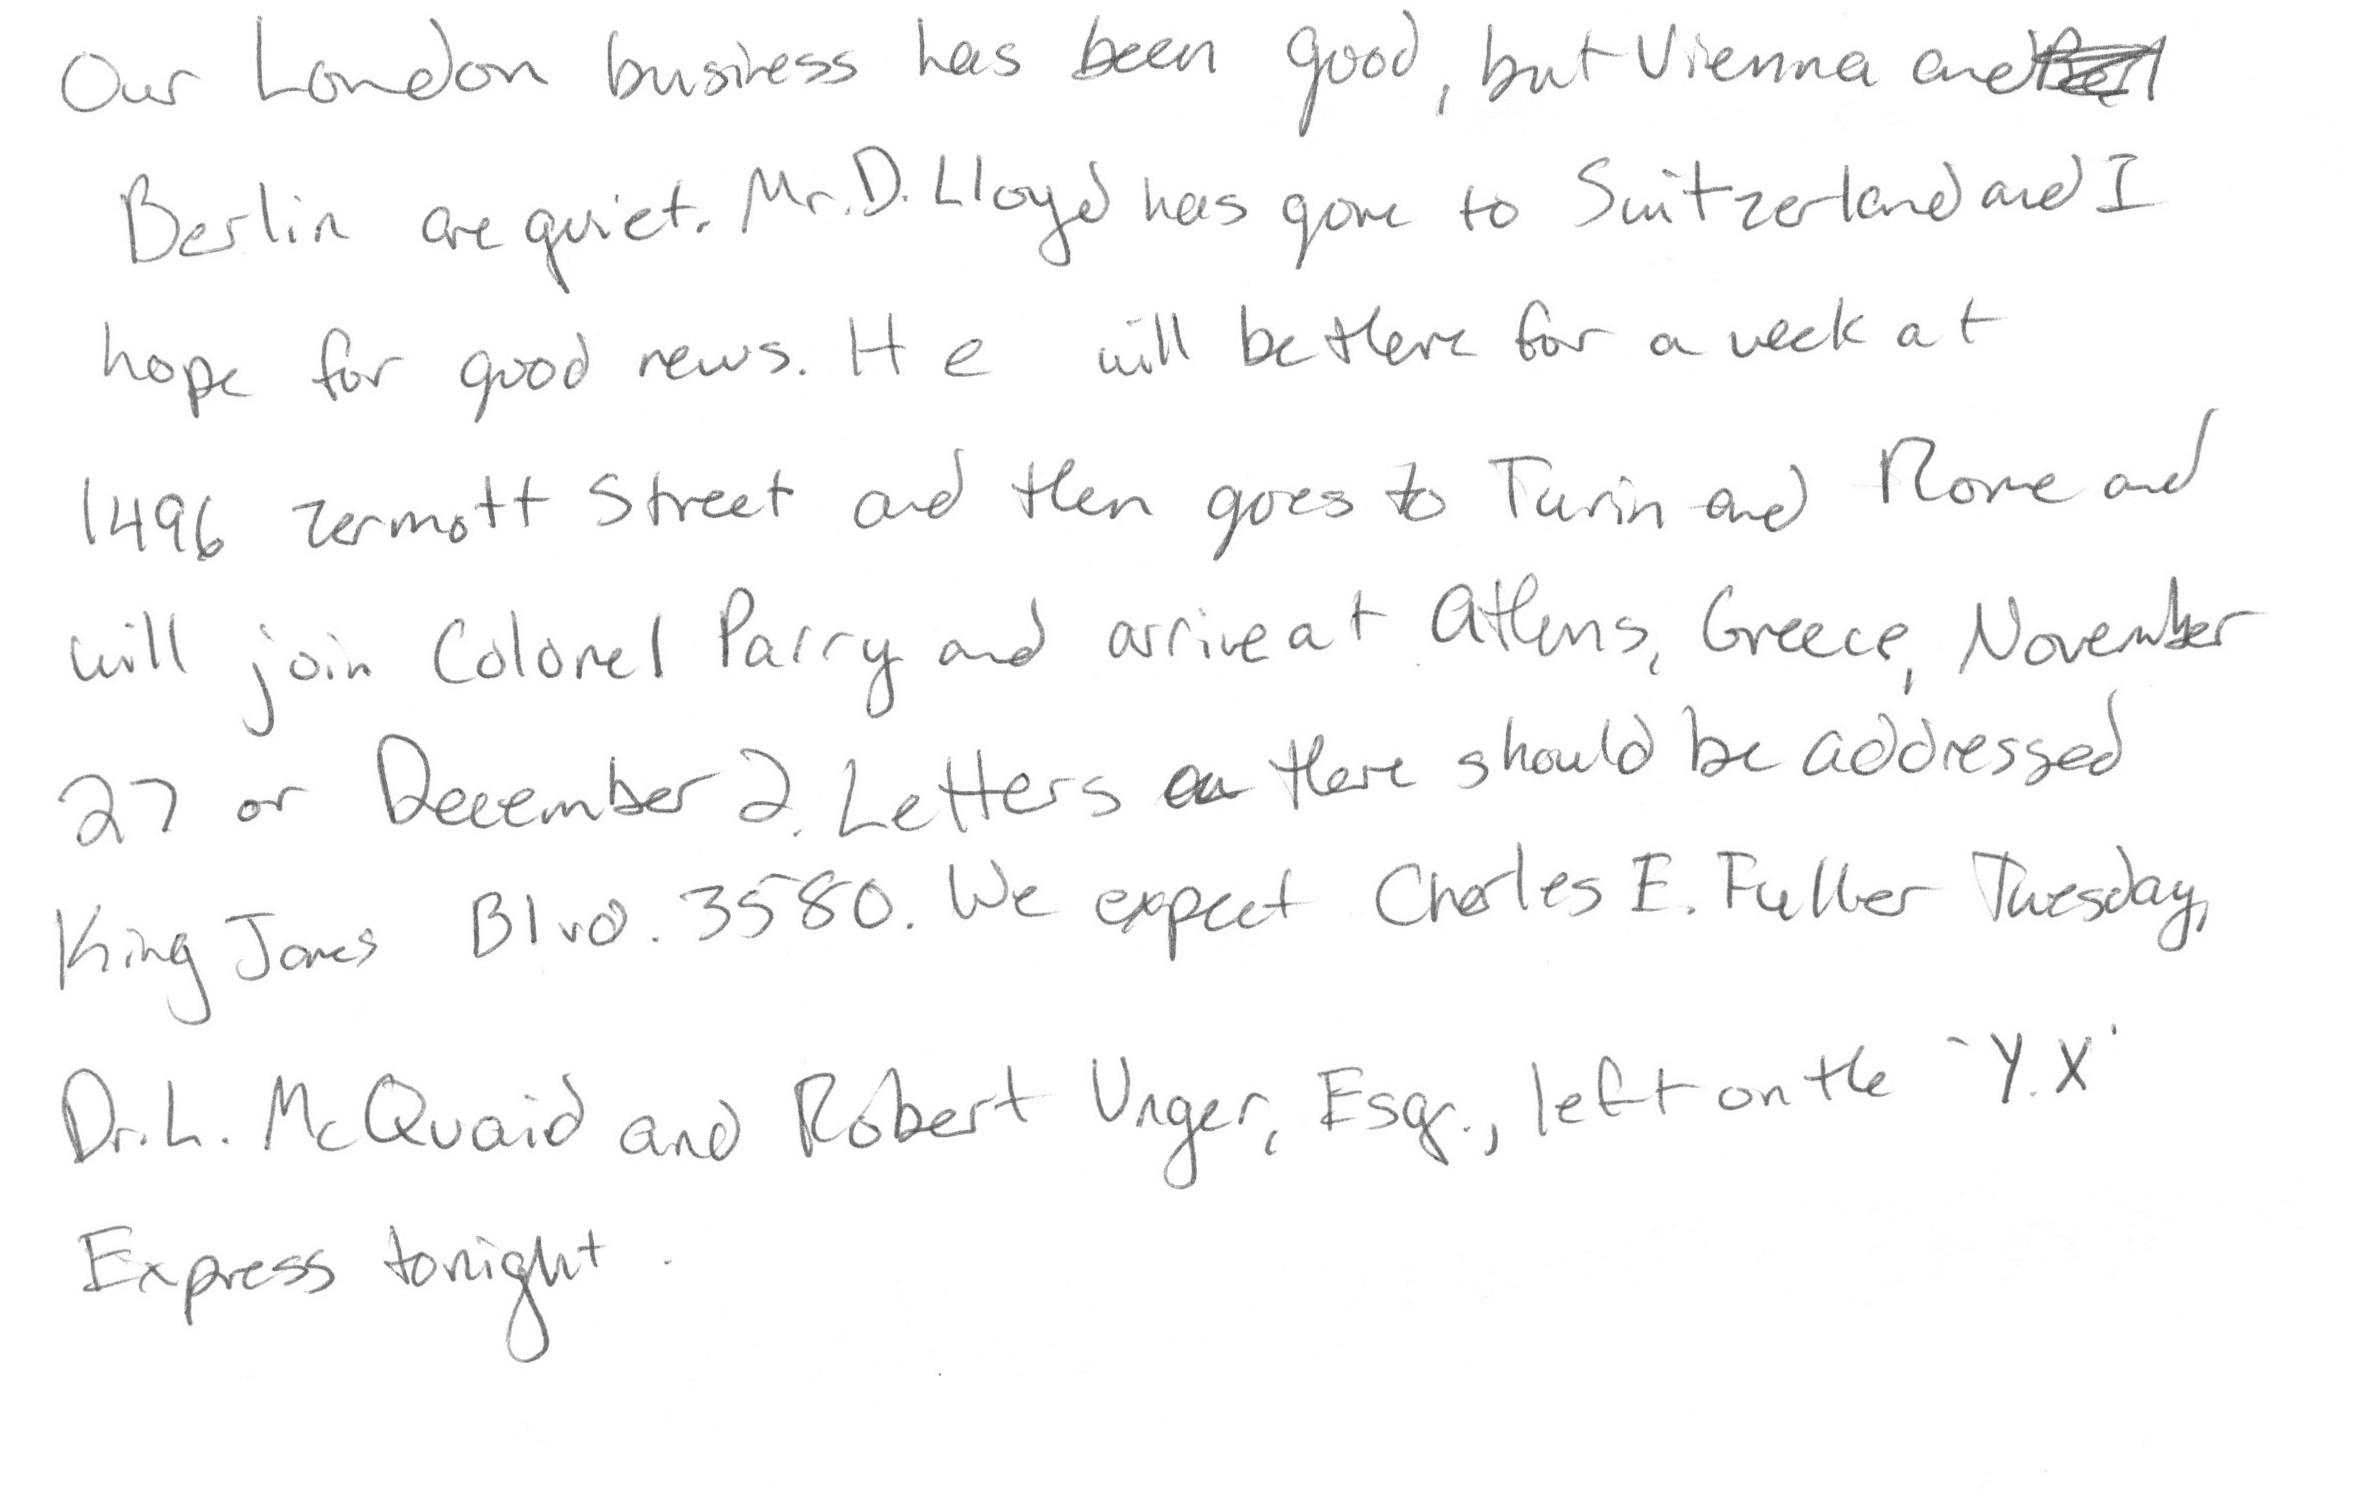 Our London business has been good, but Vienna and
Berlin are quiet. Mr. D. Lloyd has gone to Switzerland and I
hope for good news. He will be there for a week at
1496 Zermott Street and then goes to Turin and Rome and
will join Colonel Parry and arrive at Athens, Greece, November
27 or December 2. Letters there should be addressed
King James Blvd. 3580. We expect Charles E. Fuller Tuesday,
Dr. L. McQuaid and Robert Unger, Esqr., left on the 'Y.X'
Express tonight.